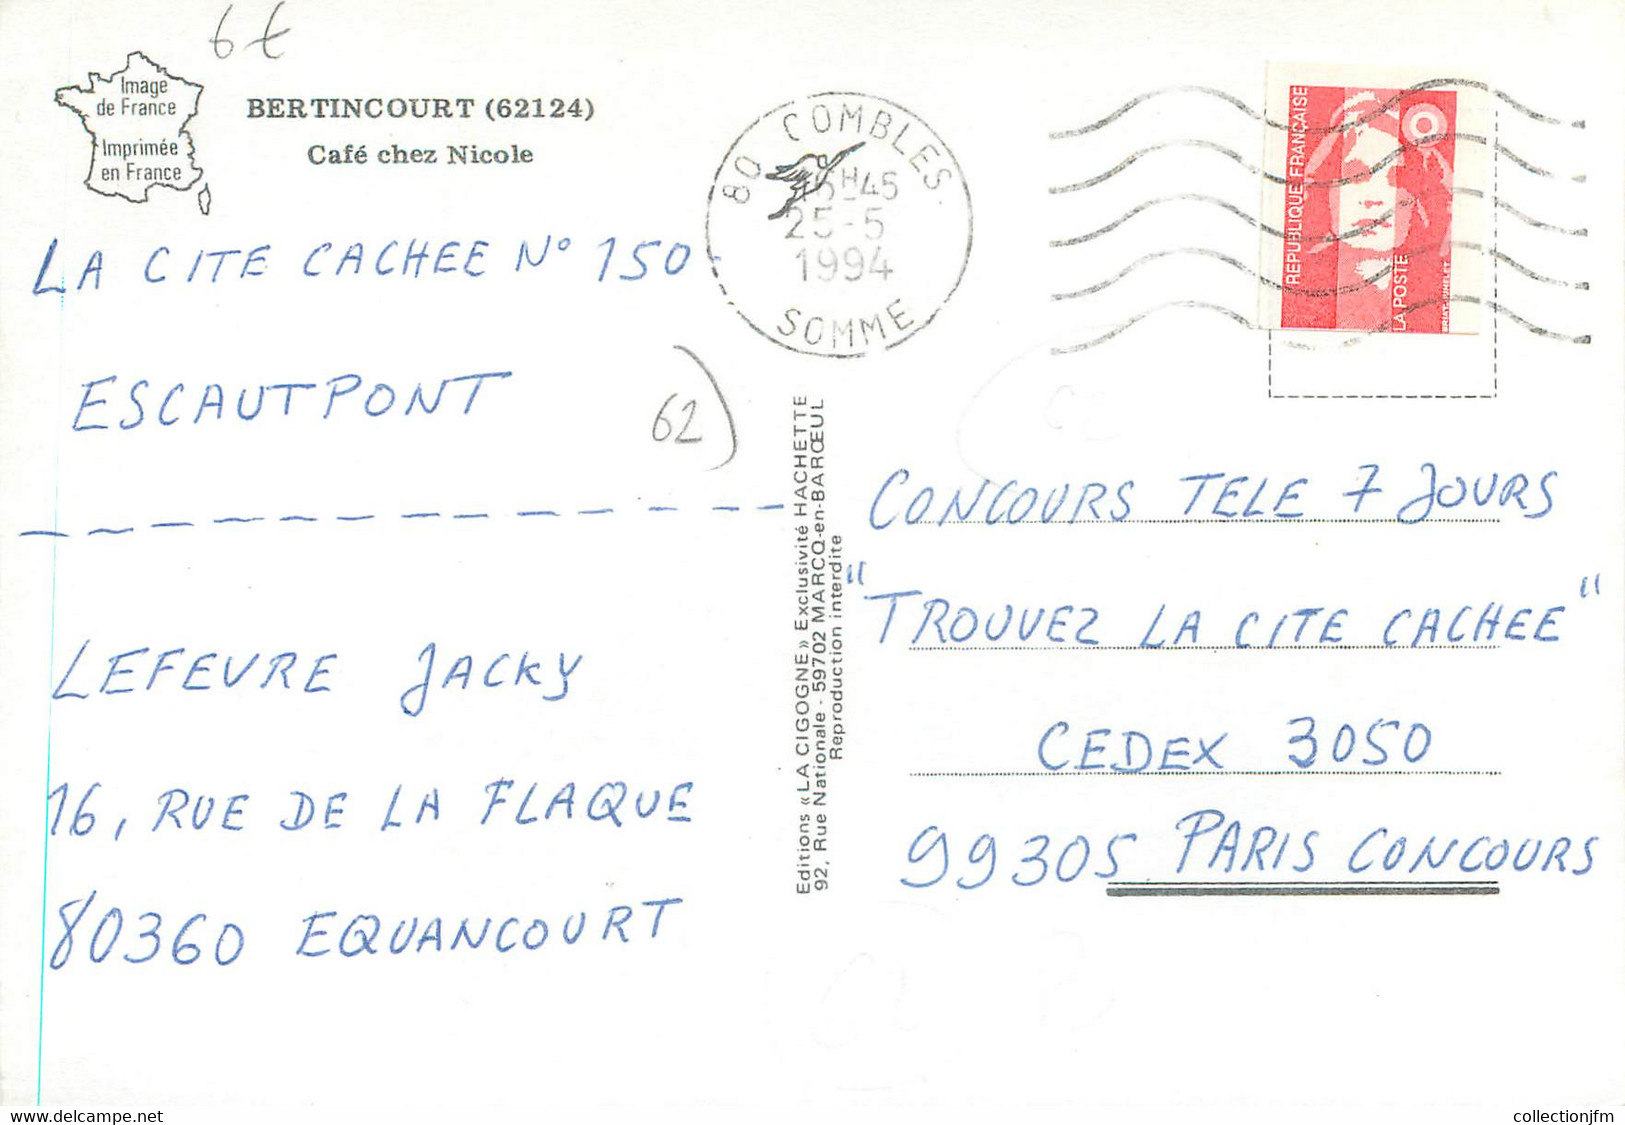 6€
Image
de France
Imprimée
en France
BERTINCOURT (62124)
Café chez Nicole
LA CITE CACHEE N° 150
ESCAUTPONT
62)
LEFEVRE JACKY
16, RUE DE LA FLAQUE
80360 EQUANCOURT
80 COMBLES
15H45
25-5
1994
SOMME
Editions «LA CIGOGNE» Exclusivité HACHETTE
92, Rue Nationale - 59702 MARCQ-en-BARŒUL
Reproduction interdite
REPUBLIQUE FRANÇAISE
LA POSTE
BRIAT-JUMELET
CONCOURS TELE 7 JOURS
"TROUVEZ LA CITE CACHEE"
CEDEX 3050
99305 PARIS CONCOURS
www.delcampe.net
collectionjfm